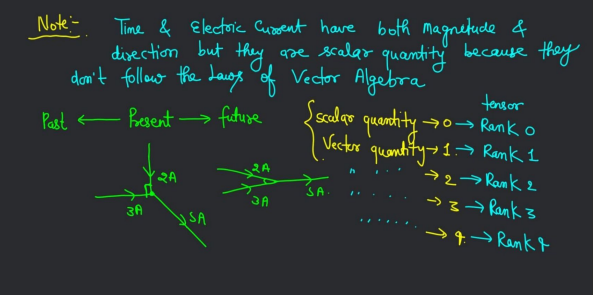 Note:- Time & Electric Current have both magnitude &
direction but they are scalar quantity because they
don't follow the Laws of Vector Algebra
Past ← Present → future
tensor
scalar quantity → 0 → Rank 0
Vector quantity → 1. → Rank 1
" " → 2 → Rank 2
→ 3 → Rank 3
→ 4. → Rank 4
2A
3A
5A
2A
3A
5A.